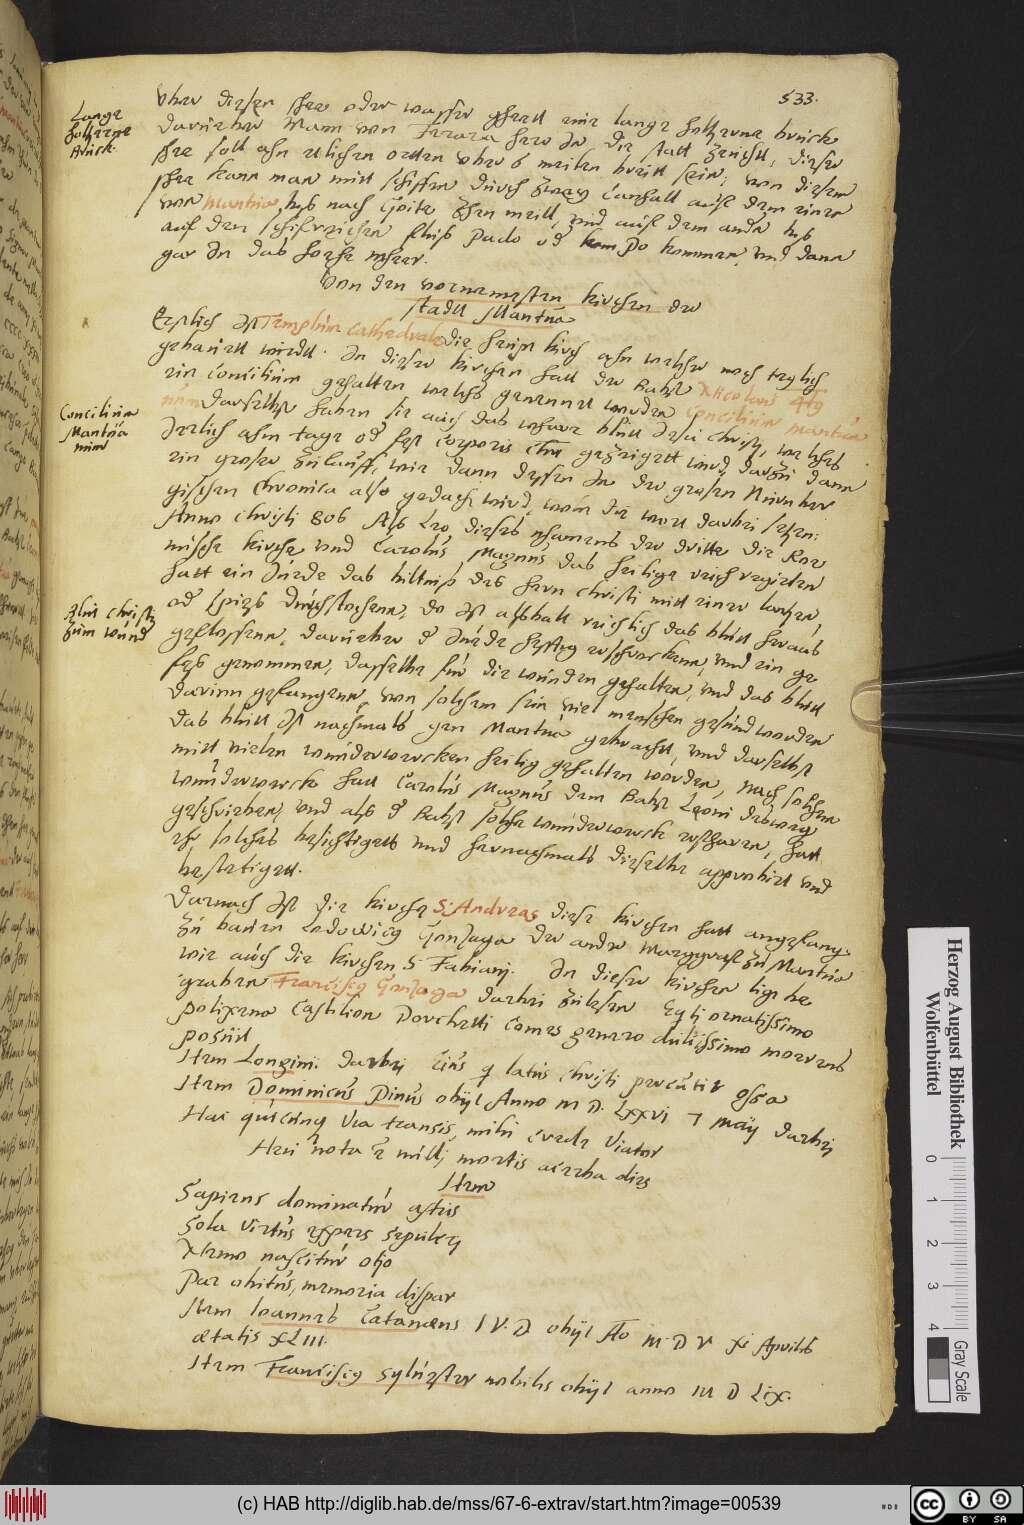 533.
Lange
holtzerne
Brück.
vber diesen sehe oder wasser gehett eine lange holtzerne brücke
darüeber Mann von Ferrara hero In die statt zeücht, dieser
sehe soll ahn etlichen orten vber 6 meilen breitt sein, von diesem
sehe kann man mitt schiffen durch zweÿ Canhall auß dem einen
von Mantua, biß nach Goite zehn meill, vnd auß dem andn biß
auf den schifreichen fluß Pado od Po kommen, vnd dann
gar In das hoche mehr.
Von den vornemesten kirchen der
stadtt Mantua
Erstlich Ist Templum Cathedrale die haupt kirch ahn welcher noch teglich
gebauett wirdtt. In dieser kirchen hatt der Babst Nicolaus 4tg
ein Concilium gehalten welchs genennet worden Concilium mantua
num daselbst haben sie auch das whare blutt Jesu Christj, welches
Concilium
Mantua
num
Jerlich ahm tage od fest Corporis Chri gezeigett wird, darzu dann
ein groser zulauff, wie dann dessen In der grosen Nürnber
gischen Chronica also gedacht wird, wie die wort darbei sehen:
Anno Christi 806 Als Leo, dieses nhamens der dritte die Röe
mische kirche vnd Carolus Magnus das heilige reich regirten
hatt ein Jüede das biltnis des hern Christi mitt einer lantzen,
od spieß durchstochenn, do Ist alsbalt reichlich das blutt heraus
Blut Christi
zum wund
geflossenn, darüeber d Juede hefftig erschrockenn, vnd ein ge
feß genommen, dasselbe für die wunden gehalten, vnd das blutt
darinn gefangenn, von solchem sein viel menschen gesund worden
das blutt Ist nachmals gen Mantua gebracht, vnd daselbst
mitt vielen wunderwercken heilig gehalten worden, nach solchem
wunderwerck hatt Carolus Magnus dem Babst Leoni deswegen
geschrieben, vnd als d Babst solche wunderwerck erfharen, hatt
ehr solches besichtigett vnd hernachmals dieselbe approbirt vnd
bestetigett.
Darnach Ist die kirche S. Andreas diese kirchen hatt angefang
zu bauen Ludowicg Gonzaga der ander Marggraff zu Mantua
wie auch die kirchen S. Fabianj. In dieser kirchen ligt be
graben Franciscg Gonzaga darbei zulesen Eqti ornatissimo
polixena Castilion Dorchetti Comes genero dulcissimo moerens
posuit
Item Longini. darbej Cuius q latus Christi percutit ossa
Item Dominicus Pinus obijt Anno M D. LXXVI 7 Maÿ darbej
Hac quicunq via transis, mihi crede Viator
Heu nota e mille mortis acerba dies
Item
Sapiens dominatur astris
Sola virtus expers sepulcrj
Nemo nascitur otio
Par obitus, memoria dispar
Item Ioannes Cataneus I V. D obijt Ao M D V XI Aprilis
ætatis XLIII.
Item Franciscg Syluester nobilis obijt anno M D LIX.
Herzog August Bibliothek
Wolfenbüttel
0 1 2 3 4
Gray Scale
(c) HAB http://diglib.hab.de/mss/67-6-extrav/start.htm?image=00539
cc BY SA